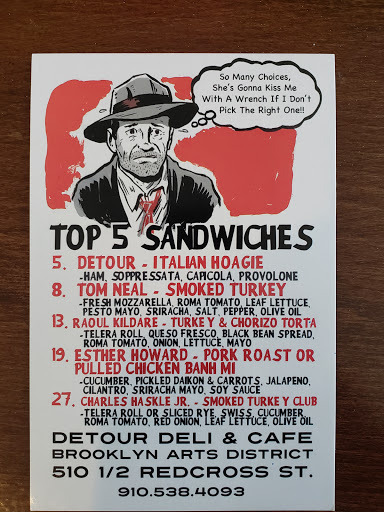 So Many Choices,
She's Gonna Kiss Me
With A Wrench If I Don't
Pick The Right One!!
TOP 5 SANDWICHES
5. DETOUR - ITALIAN HOAGIE
-HAM, SOPPRESSATA, CAPICOLA, PROVOLONE
8. TOM NEAL - SMOKED TURKEY
-FRESH MOZZARELLA, ROMA TOMATO, LEAF LETTUCE,
PESTO MAYO, SRIRACHA, SALT, PEPPER, OLIVE OIL
13. RAOUL KILDARE - TURKEY & CHORIZO TORTA
-TELERA ROLL, QUESO FRESCO, BLACK BEAN SPREAD,
ROMA TOMATO, ONION, LETTUCE, MAYO
19. ESTHER HOWARD - PORK ROAST OR
PULLED CHICKEN BANH MI
-CUCUMBER, PICKLED DAIKON & CARROTS, JALAPENO,
CILANTRO, SRIRACHA MAYO, SOY SAUCE
27. CHARLES HASKLE JR. - SMOKED TURKEY CLUB
-TELERA ROLL OR SLICED RYE, SWISS, CUCUMBER,
ROMA TOMATO, RED ONION, LEAF LETTUCE, OLIVE OIL
DETOUR DELI & CAFE
BROOKLYN ARTS DISTRICT
510 1/2 REDCROSS ST.
910.538.4093